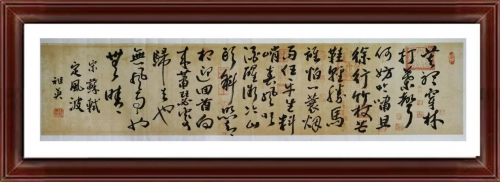 莫聽穿林
打葉聲
何妨吟嘯且
徐行竹杖芒
鞋輕勝馬
誰怕一蓑煙
雨任平生料
峭春風吹
酒醒微冷山
頭斜照卻
相迎回首向
來蕭瑟處
歸去也
無風雨也
無晴
宋蘇軾
定風波